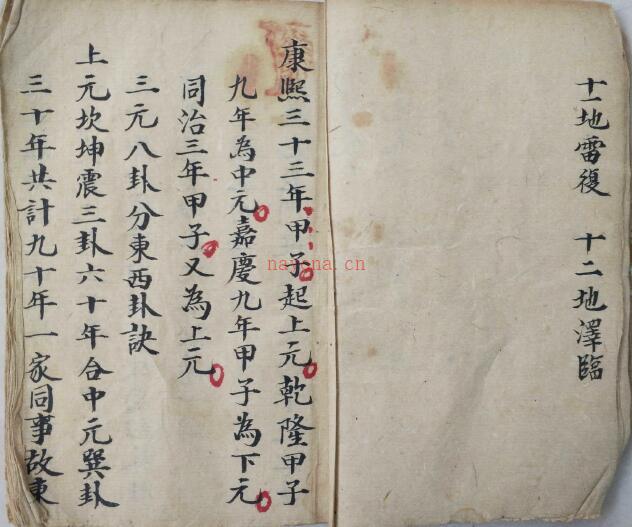 十一地雷復 十二地澤臨
康熙三十三年甲子起上元乾隆甲子
九年為中元嘉慶九年甲子為下元
同治三年甲子又為上元
三元八卦分東西卦訣
上元坎坤震三卦六十年合中元巽卦
三十年共計九十年一家同事故東
nayona.cn